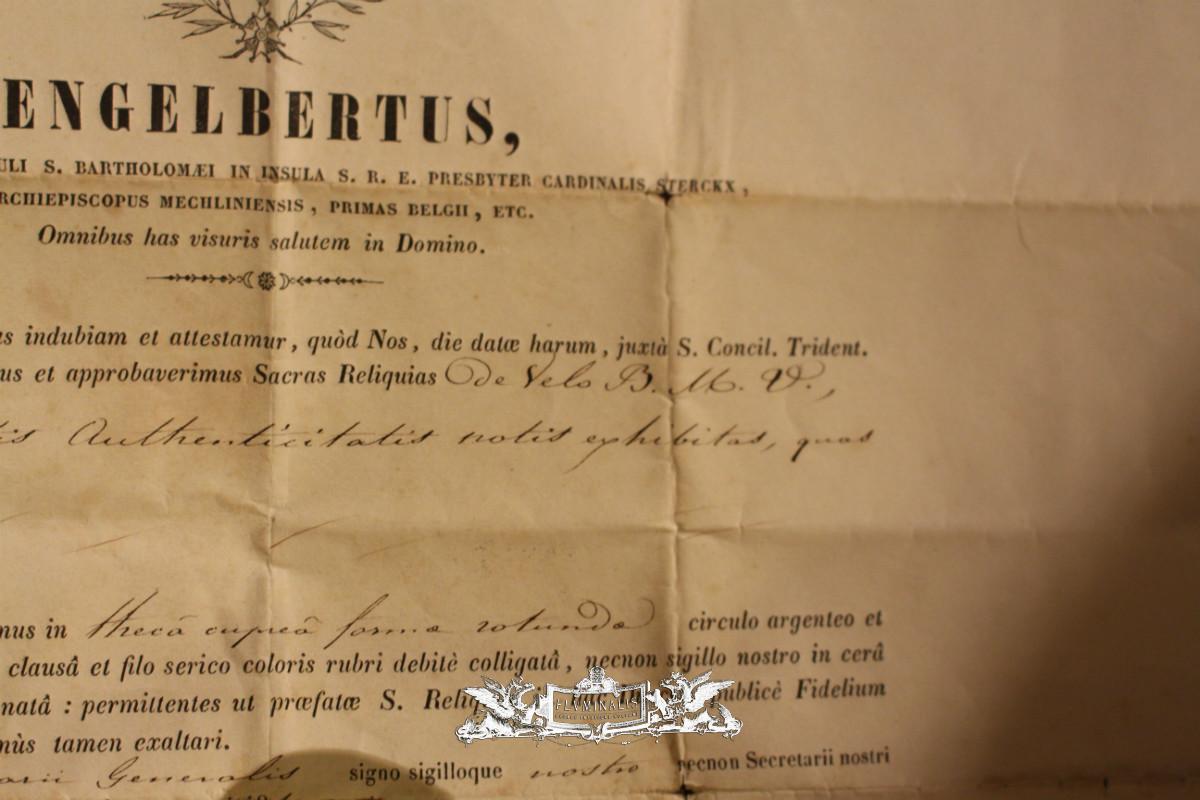 ENGELBERTUS,
ULI S. BARTHOLOMÆI IN INSULA S. R. E. PRESBYTER CARDINALIS STERCKX,
RCHIEPISCOPUS MECHLINIENSIS, PRIMAS BELGII, ETC.
Omnibus has visuris salutem in Domino.
s indubiam et attestamur, quòd Nos, die datæ harum, juxtà S. Concil. Trident.
us et approbaverimus Sacras Reliquias de Velo B. M. V.,
is Authenticitatis notis exhibitas, quas
nus in thecâ cupreâ formæ rotundæ circulo argenteo et
clausâ et filo serico coloris rubri debitè colligatâ, necnon sigillo nostro in cerâ
natâ : permittentes ut præfatæ S. Reliq publicè Fidelium
nùs tamen exaltari.
arii Generalis signo sigilloque nostro necnon Secretarii nostri
FLUMINALIS